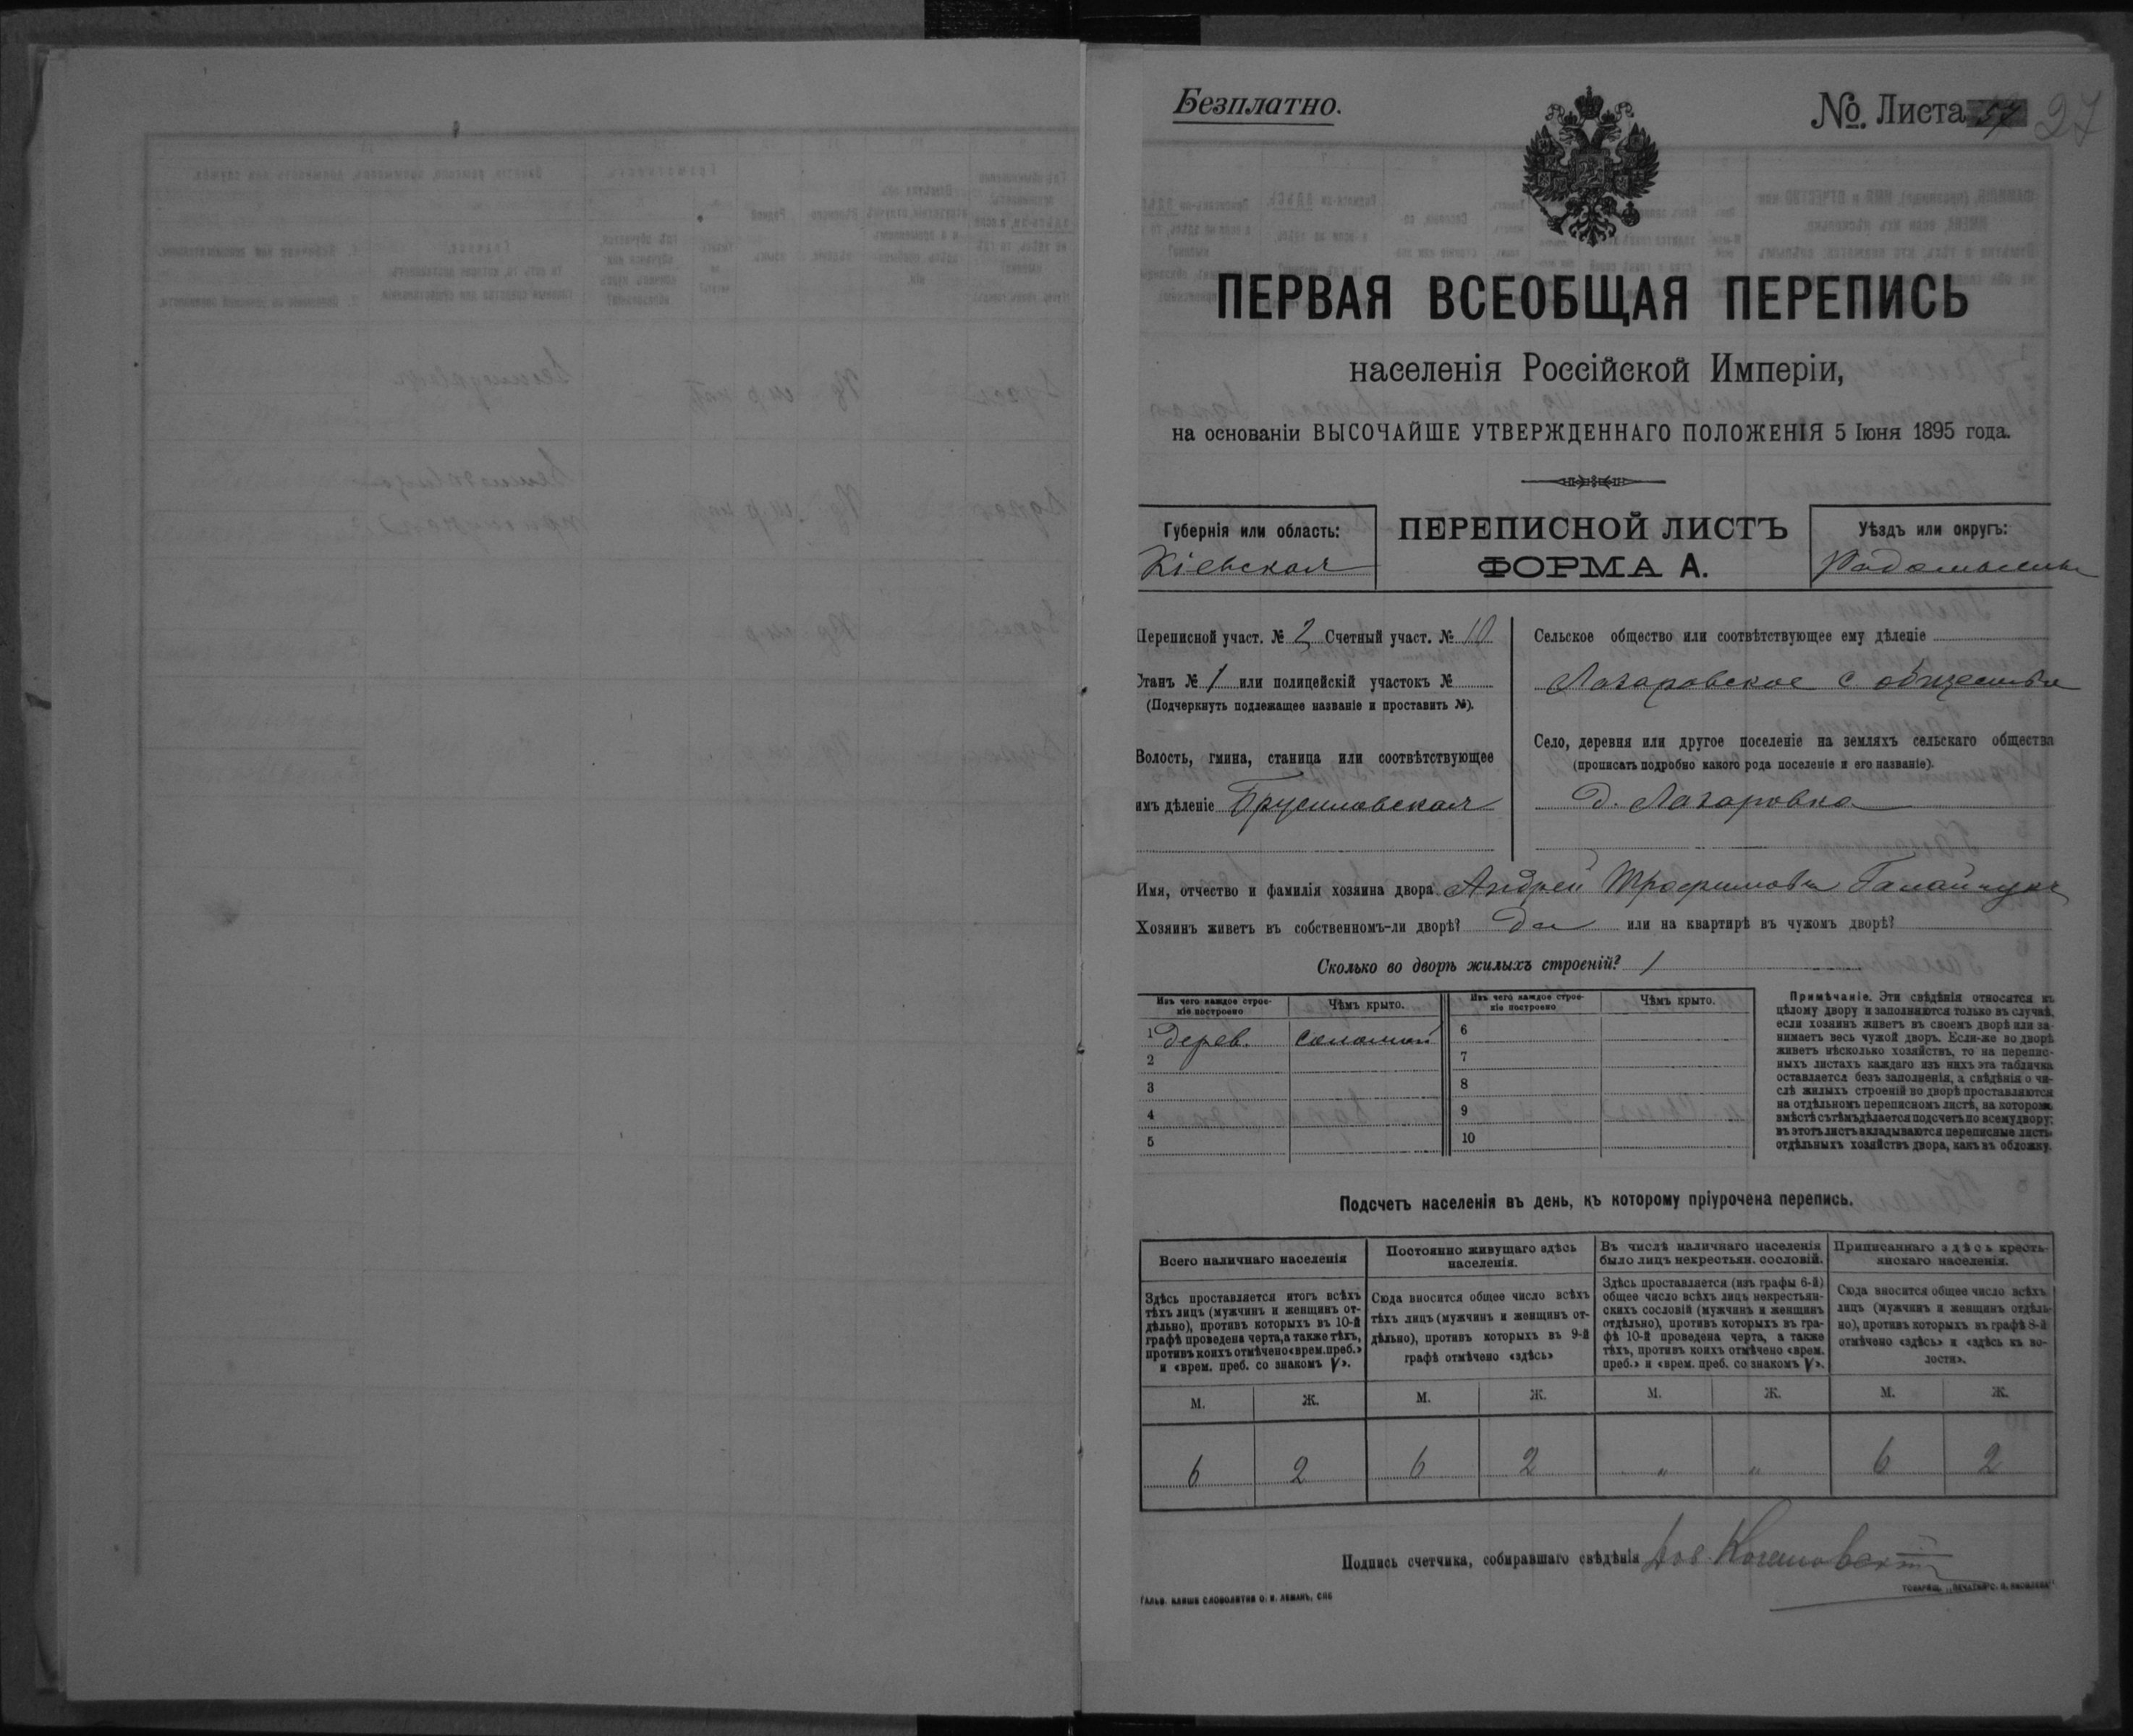 Безплатно.
№. Листа 27
ПЕРВАЯ ВСЕОБЩАЯ ПЕРЕПИСЬ
населенія Россійской Имперіи,
на основаніи ВЫСОЧАЙШЕ УТВЕРЖДЕННАГО ПОЛОЖЕНІЯ 5 Іюня 1895 года.
Губернія или область:
Кіевская
ПЕРЕПИСНОЙ ЛИСТЪ
ФОРМА А.
Уѣздъ или округъ:
Переписной участ. № 2 Счетный участ. № 10
Станъ № 1 или полицейскій участокъ №
(Подчеркнуть подлежащее названіе и проставить №).
Волость, гмина, станица или соотвѣтствующее
имъ дѣленіе Брусиловская
Сельское общество или соотвѣтствующее ему дѣленіе
Лазаровское с общество
Село, деревня или другое поселеніе на земляхъ сельскаго общества
(прописать подробно какого рода поселеніе и его названіе).
д. Лазаровка
Имя, отчество и фамилія хозяина двора Андрей Трофимовъ Галайчукъ
Хозяинъ живетъ въ собственномъ-ли дворѣ? Да или на квартирѣ въ чужомъ дворѣ?
Сколько во дворѣ жилыхъ строеній? 1
Изъ чего каждое строе-
ніе построено
Чѣмъ крыто.
Изъ чего каждое строе-
ніе построено
Чѣмъ крыто.
1 дерев. соломой 6
2 7
3 8
4 9
5 10
Примѣчаніе. Эти свѣдѣнія относятся къ
цѣлому двору и заполняются только въ случаѣ,
если хозяинъ живетъ въ своемъ дворѣ или за-
нимаетъ весь чужой дворъ. Если-же во дворѣ
живетъ нѣсколько хозяйствъ, то на перепис-
ныхъ листахъ каждаго изъ нихъ эта табличка
оставляется безъ заполненія, а свѣдѣнія о чи-
слѣ жилыхъ строеній во дворѣ проставляются
на отдѣльномъ переписномъ листѣ, на которомъ
вмѣстѣ съ тѣмъ дѣлается подсчетъ по всему двору;
въ этотъ листъ вкладываются переписные листы
отдѣльныхъ хозяйствъ двора, какъ въ обложку.
Подсчетъ населенія въ день, къ которому пріурочена перепись.
Всего наличнаго населенія
Здѣсь проставляется итогъ всѣхъ
тѣхъ лицъ (мужчинъ и женщинъ от-
дѣльно), противъ которыхъ въ 10-й
графѣ проведена черта, а также тѣхъ,
противъ коихъ отмѣчено «врем. преб.»
и «врем. преб. со знакомъ V».
Постоянно живущаго здѣсь
населенія.
Сюда вносится общее число всѣхъ
тѣхъ лицъ (мужчинъ и женщинъ от-
дѣльно), противъ которыхъ въ 9-й
графѣ отмѣчено «здѣсь»
Въ числѣ наличнаго населенія
было лицъ некрестьян. сословій.
Здѣсь проставляется (изъ графы 6-й)
общее число всѣхъ лицъ некрестьян-
скихъ сословій (мужчинъ и женщинъ
отдѣльно), противъ которыхъ въ гра-
фѣ 10-й проведена черта, а также
тѣхъ, противъ коихъ отмѣчено «врем.
преб.» и «врем. преб. со знакомъ V».
Приписаннаго здѣсь кресть-
янскаго населенія.
Сюда вносится общее число всѣхъ
лицъ (мужчинъ и женщинъ отдѣль-
но), противъ которыхъ въ графѣ 8-й
отмѣчено «здѣсь» и «здѣсь къ во-
лости».
М. Ж. М. Ж. М. Ж. М. Ж.
6 2 6 2 " " 6 2
Подпись счетчика, собиравшаго свѣдѣнія